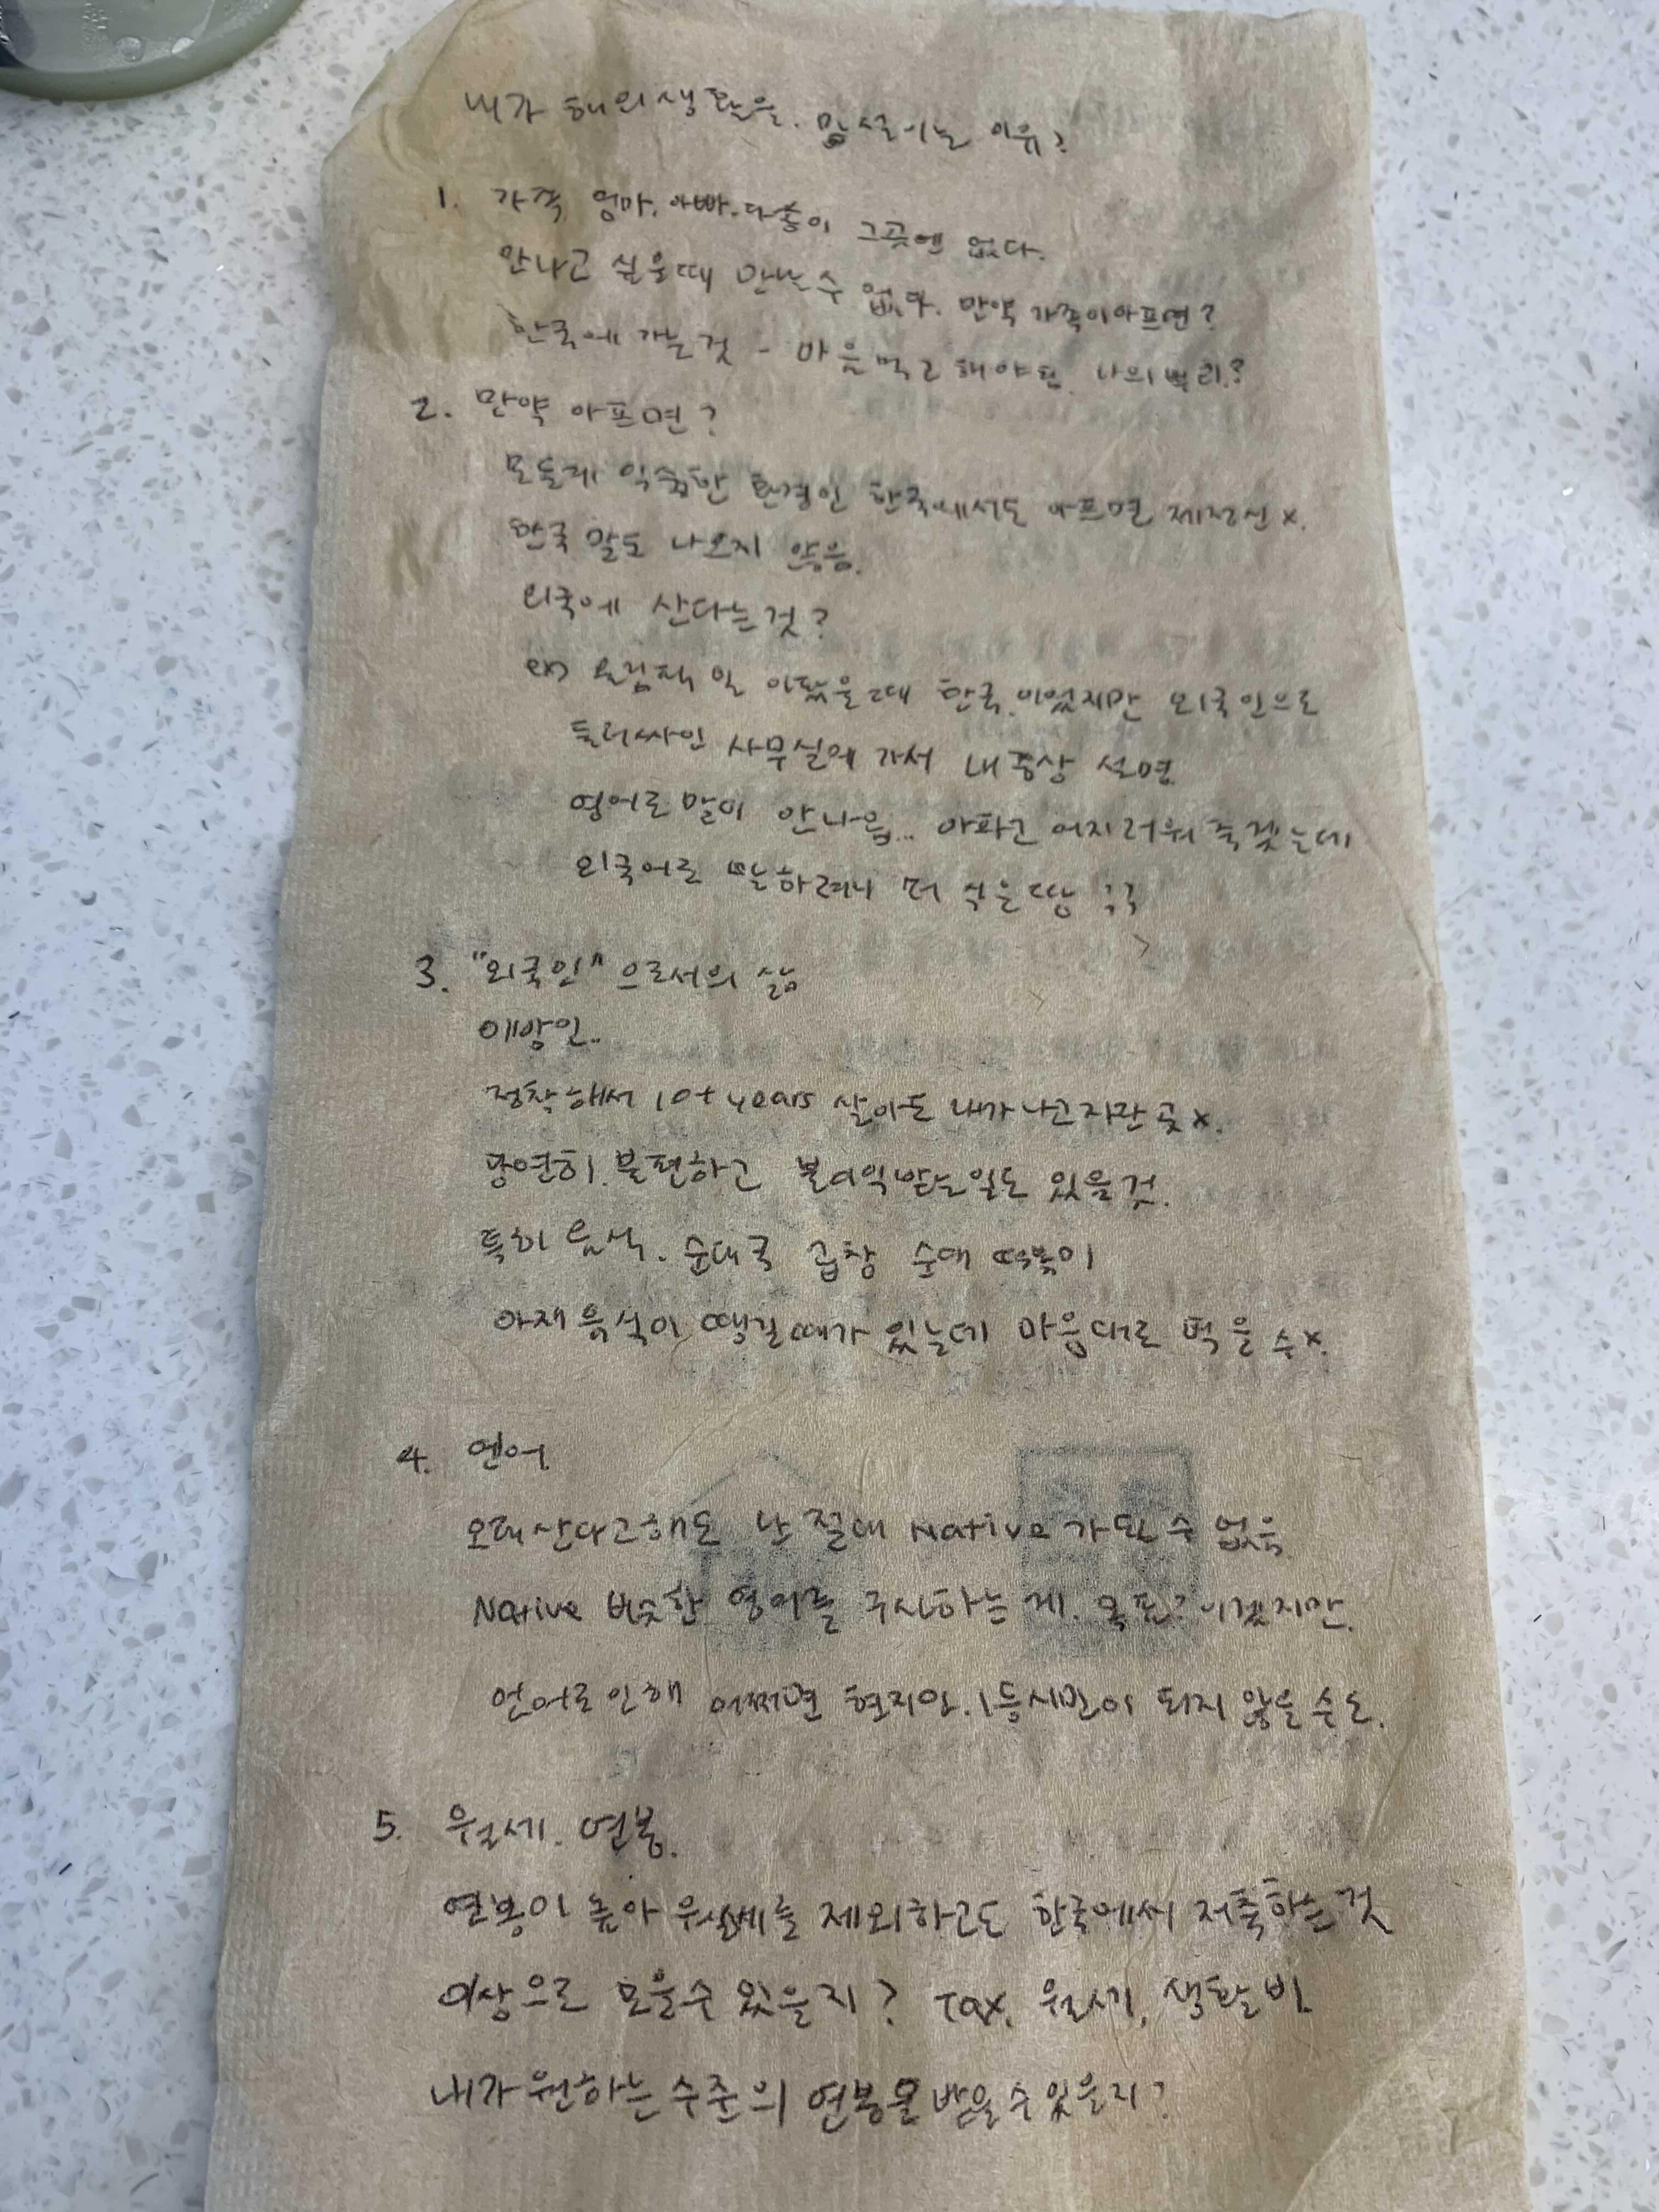 내가 해외생활을. 망설이는 이유?
1. 가족 엄마. 아빠. 다송이 그곳엔 없다.
만나고 싶을때 만날수 없다. 만약 가족이아프면?
한국에 가는것 - 마음먹고 해야됨. 나의뿌리?
2. 만약 아프면?
모든게 익숙한 환경인 한국에서도 아프면 제정신 x.
한국 말도 나오지 않음.
외국에 산다는것?
ex) 올림픽 일 아팠을때 한국.이었지만 외국인으로
둘러싸인 사무실에 가서 내증상 설명
영어로말이 안나옴.. 아파고 어지러워 죽겠는데
외국어로 말하려니 더 죽을땅 ;;
3. "외국인" 으로서의 삶
이방인..
정착해서 10+ years 살아도 내가나고자란 곳 x.
당연히. 불편하고 불이익받는일도 있을것.
특히 음식. 순대국 곱창 순대 떡볶이
아재음식이 땡길때가 있는데 마음대로 먹을 수x.
4. 언어
오래산다고해도 난 절대 Native 가 될 수 없음
Native 비슷한 영어를 구사하는게. 목표?이겠지만.
언어로인해 어쩌면 현지인.1등시민이 되지 않을 수도.
5. 월세. 연봉.
연봉이 높아 월세를 제외하고도 한국에서 저축하는것
이상으로 모을수 있을지? Tax. 월세, 생활비
내가원하는수준의 연봉을받을수있을지?